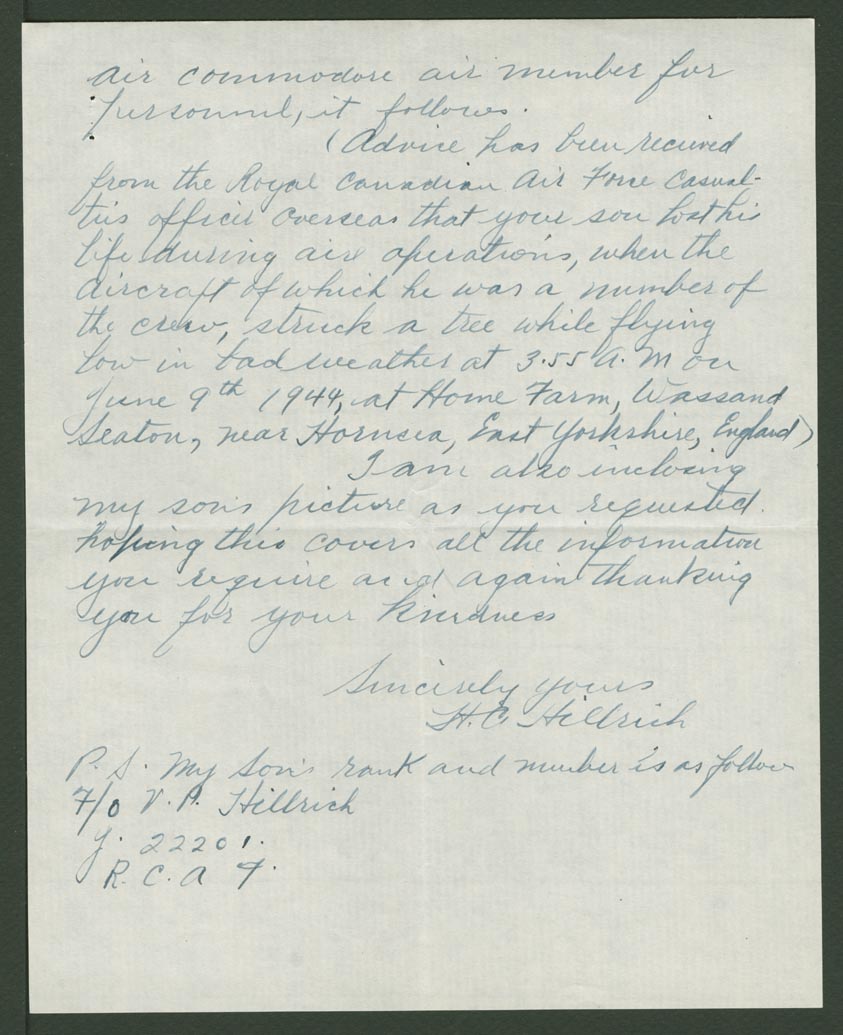 air commodore air member for
personnel, it follows.
(Advice has been recieved
from the Royal Canadian Air Force Casual-
ties officer overseas that your son lost his
life during air operations, when the
aircraft of which he was a number of
the crew, struck a tree while flying
low in bad weather at 3.55 A.M on
June 9th 1944, at Home Farm, Wassand
Seaton, near Hornsea, East Yorkshire, England)
I am also inclosing
my son's picture as you requested.
hoping this covers all the information
you require and again thanking
you for your kindness
Sincerely yours
H.C. Hillrich
P.S. My Son's rank and number is as follow
F/O V.P. Hillrich
J. 22201.
R.C.A F.